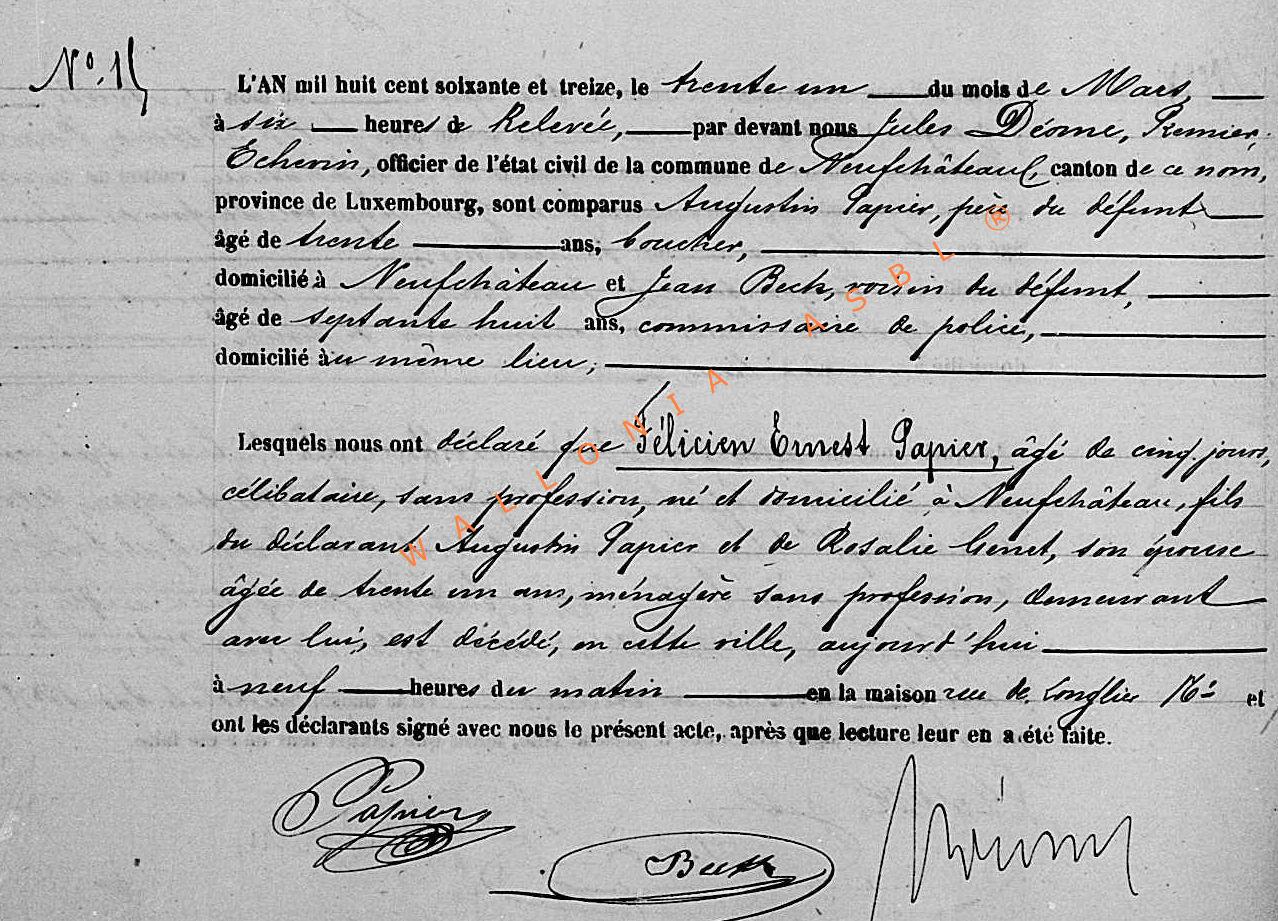 L'AN mil huit cent soixante et treize, le trente un du mois de Mars,
à six heures de Relevée, par devant nous Jules Déome, Premier
Echevin, officier de l'état civil de la commune de Neufchâteau, canton de ce nom,
province de Luxembourg, sont comparus Augustin Papier, père du défunt
âgé de trente ans, boucher,
domicilié à Neufchâteau et Jean Beck, voisin du défunt,
âgé de septante huit ans, commissaire de police,
domicilié au même lieu,
Lesquels nous ont déclaré que Félicien Ernest Papier, âgé de cinq jours,
célibataire, sans profession, né et domicilié à Neufchâteau, fils
du déclarant Augustin Papier et de Rosalie Genet, son épouse
âgée de trente un ans, ménagère sans profession, demeurant
avec lui, est décédé, en cette ville, aujourd'hui
à neuf heures du matin en la maison rue de Longlier No et
ont les déclarants signé avec nous le présent acte, après que lecture leur en a été faite.
Papier
Beck
WALLONIA ASBL ®